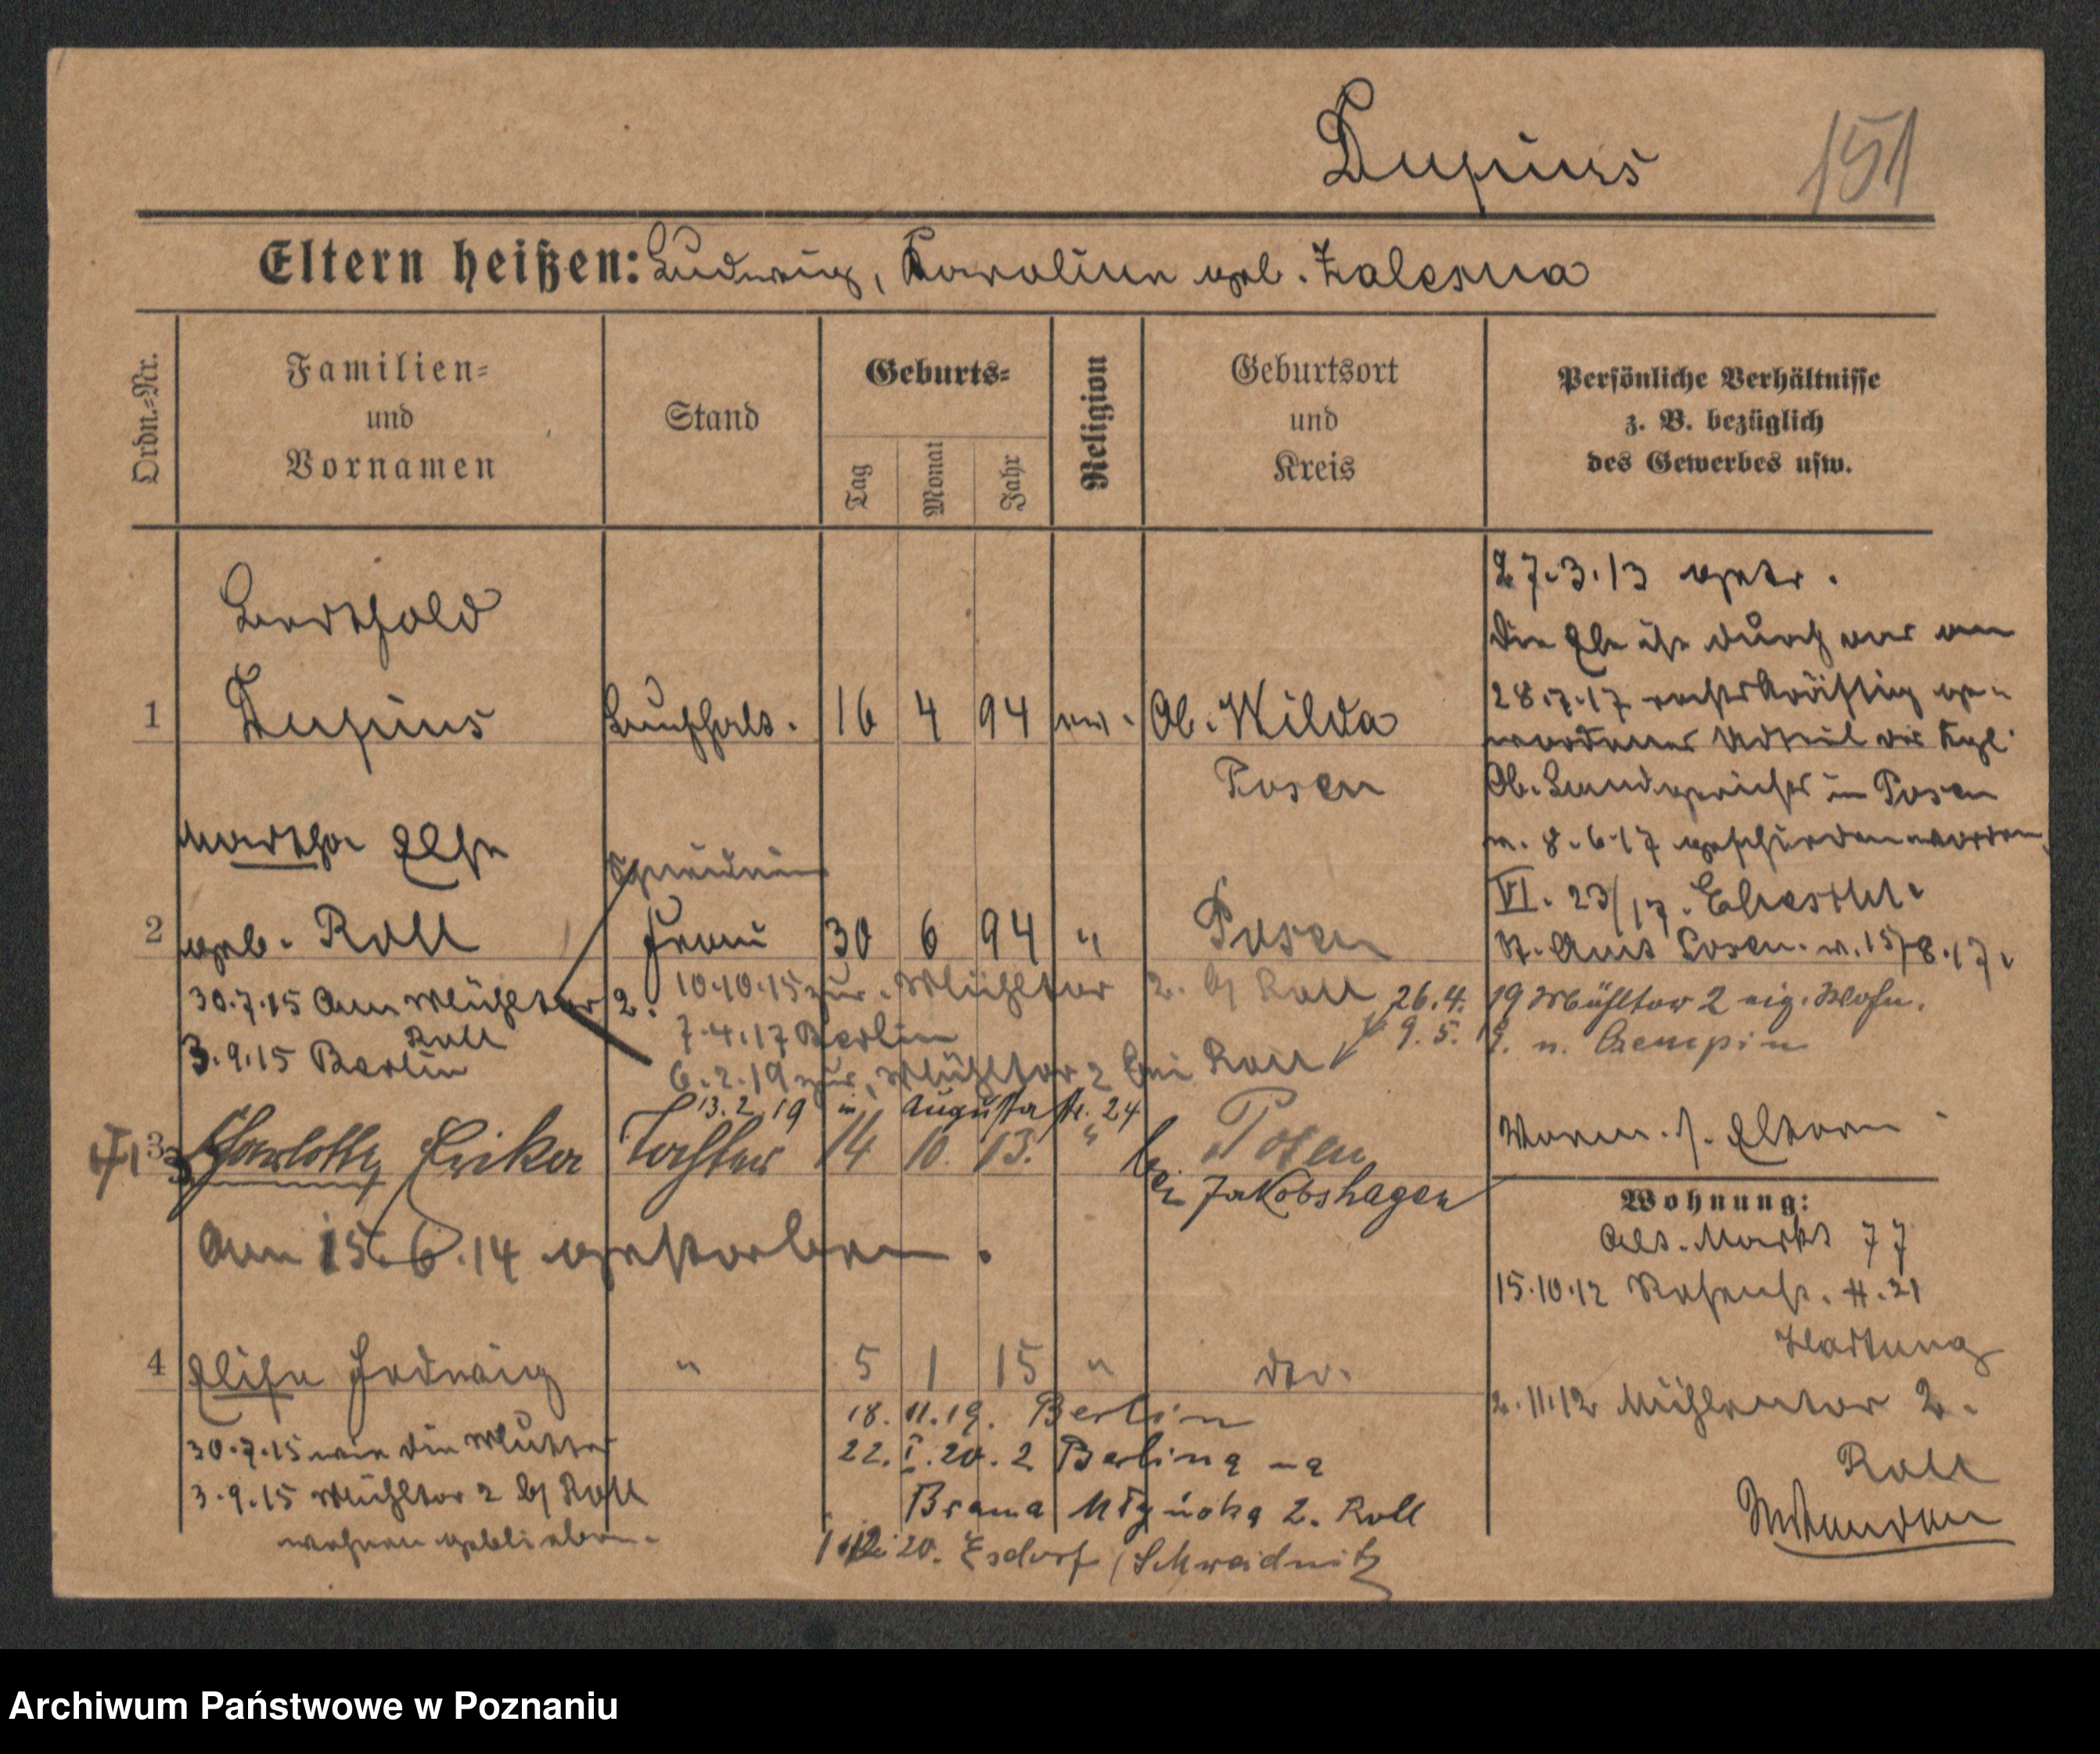 Dupius 151
Eltern heißen: Ludwig, Karoline geb. Zalesna
Ordn.=Nr.
Familien=
und
Vornamen
Stand
Geburts=
Tag
Monat
Jahr
Religion
Geburtsort
und
Kreis
Persönliche Verhältnisse
z. B. bezüglich
des Gewerbes usw.
Berthold
1 Dupius Buchhalt. 16 4 94 ev. Ob. Wilda
Posen
27.3.13 getr.
Die Ehe ist durch das am
28.7.17 rechtskräftig ge-
wordene Urteil des Kgl.
Ob. Landgerichts in Posen
v. 8.6.17 geschieden worden
VI. 23/17.
St. Amt Posen. v. 15/8.17.
Martha Else
2 geb. Roll Frau 30 6 94 " Posen
30.7.15 Am Mühltor 2.
Roll
3.9.15 Berlin
10.10.15 zur. Mühltor 2. b/ Roll
7.4.17 Berlin
6.2.19 zur. Mühltor 2 bei Roll
26.4.19 Mühltor 2 eig. Wohn.
9.5.19. n. Czempin
13.2.19 in Augusta str. 24
3 Charlotte Erika Tochter 14 10. 13. " Posen
bei Jakobshagen
Am 15.6.14 gestorben.
Vorm. s. Eltern
Wohnung:
Alt. Markt 77
15.10.12 H. 21
Hartung
2.11.12 Mühlentor 2.
Roll
4 Elise Hedwig " 5 1 15 " do.
30.7.15 wie die Mutter
3.9.15 Mühltor 2 b/ Roll
wohnen geblieben.
18.11.19. Berlin
22.I.20. z Berlina na
Brama Młyńska 2. Roll
20. Esdorf /Schweidnitz
Archiwum Państwowe w Poznaniu